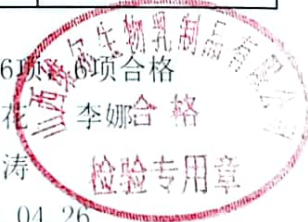 6项，6项合格
花 李娜
涛
04 26
山西 尔生物乳制品有限公司
合格
检验专用章